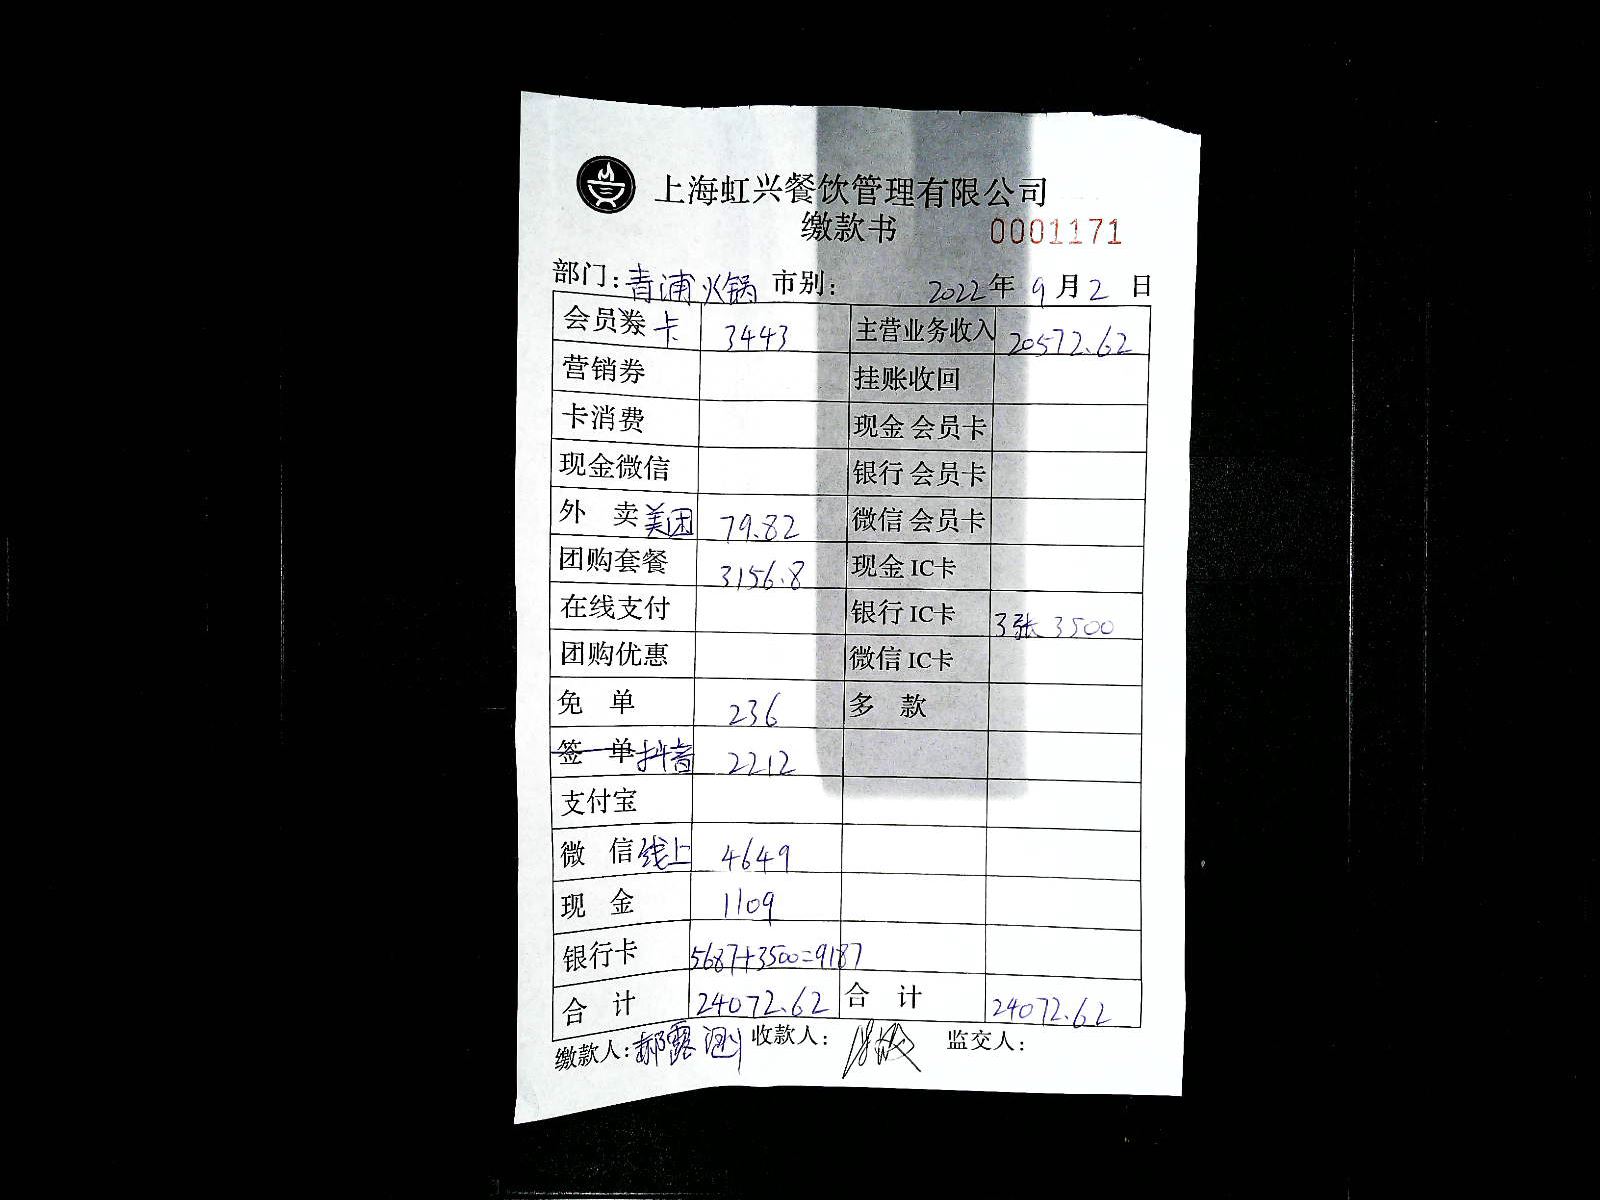 上海虹兴餐饮管理有限公司
缴款书 0001171
部门: 青浦火锅 市别: 2022 年 9 月 2 日
会员券 卡 3443 主营业务收入 20572.62
营销券 挂账收回
卡消费 现金 会员卡
现金微信 银行 会员卡
外 卖 美团 79.82 微信 会员卡
团购套餐 3156.8 现金 IC卡
在线支付 银行 IC卡 3张 3500
团购优惠 微信 IC卡
免 单 236 多 款
签 单 抖音 2212
支付宝
微 信 线上 4649
现 金 1109
银行卡 5687+3500=9187
合 计 24072.62 合 计 24072.62
缴款人: 郝露 收款人: 监交人: